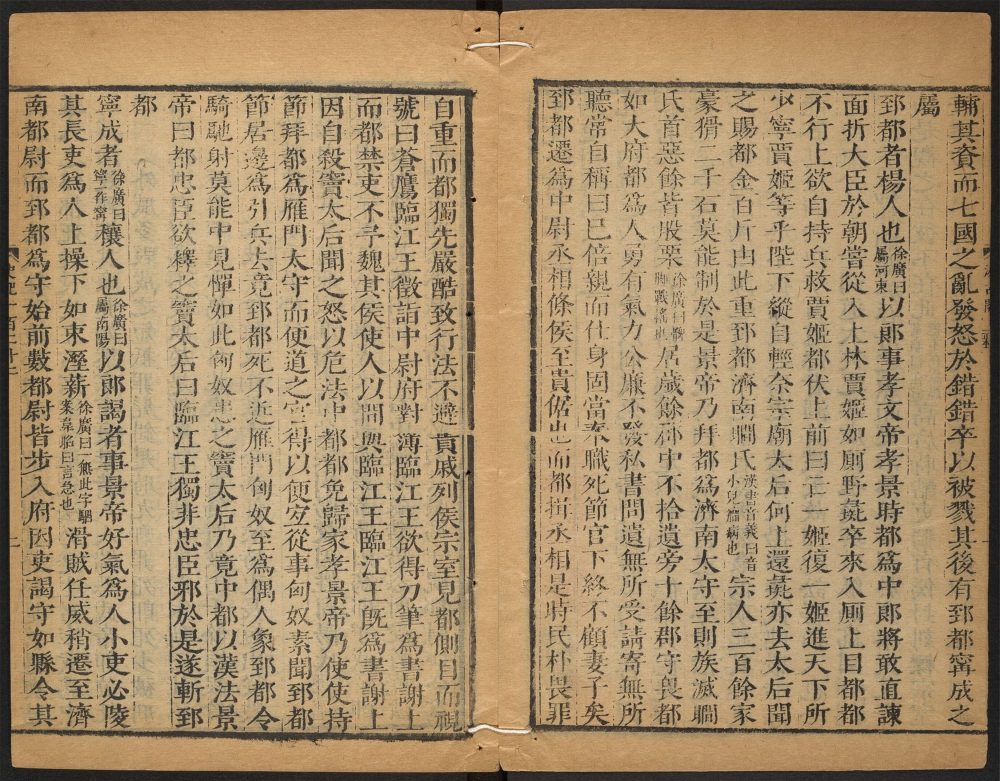 輔其資而七國之亂發怒於錯錯卒以被戮其後有郅都甯成之
屬
郅都者楊人也徐廣曰屬河東以郎事孝文帝孝景時都爲中郎將敢直諫
面折大臣於朝嘗從入上林賈姬如厠野彘卒來入厠上目都都
不行上欲自持兵救賈姬都伏上前曰亡一姬復一姬進天下所
少寧賈姬等乎陛下縱自輕奈宗廟太后何上還彘亦去太后聞
之賜都金百斤由此重郅都濟南瞷氏漢書音義曰音小兒癎病也宗人三百餘家
豪猾二千石莫能制於是景帝乃拜都爲濟南太守至則族滅瞷
氏首惡餘皆股栗徐廣曰髀脚戰搖也居歲餘郡中不拾遺旁十餘郡守畏都
如大府都爲人勇有氣力公廉不發私書問遺無所受請寄無所
聽常自稱曰已倍親而仕身固當奉職死節官下終不顧妻子矣
郅都遷爲中尉丞相條侯至貴倨也而都揖丞相是時民朴畏罪
自重而都獨先嚴酷致行法不避貴戚列侯宗室見都側目而視
號曰蒼鷹臨江王徵詣中尉府對薄臨江王欲得刀筆爲書謝上
而都禁吏不予魏其侯使人以間與臨江王臨江王既爲書謝上
因自殺竇太后聞之怒以危法中都都免歸家孝景帝乃使使持
節拜都爲雁門太守而便道之官得以便宜從事匈奴素聞郅都
節居邊爲引兵去竟郅都死不近雁門匈奴至爲偶人象郅都令
騎馳射莫能中見憚如此匈奴患之竇太后乃竟中都以漢法景
帝曰都忠臣欲釋之竇太后曰臨江王獨非忠臣邪於是遂斬郅
都
甯成者徐廣曰甯一作寗穰人也徐廣曰屬南陽以郎謁者事景帝好氣爲人小吏必陵
其長吏爲人上操下如束溼薪徐廣曰一無此字駰案韋昭曰言急也滑賊任威稍遷至濟
南都尉而郅都爲守始前數都尉皆步入府因吏謁守如縣令其